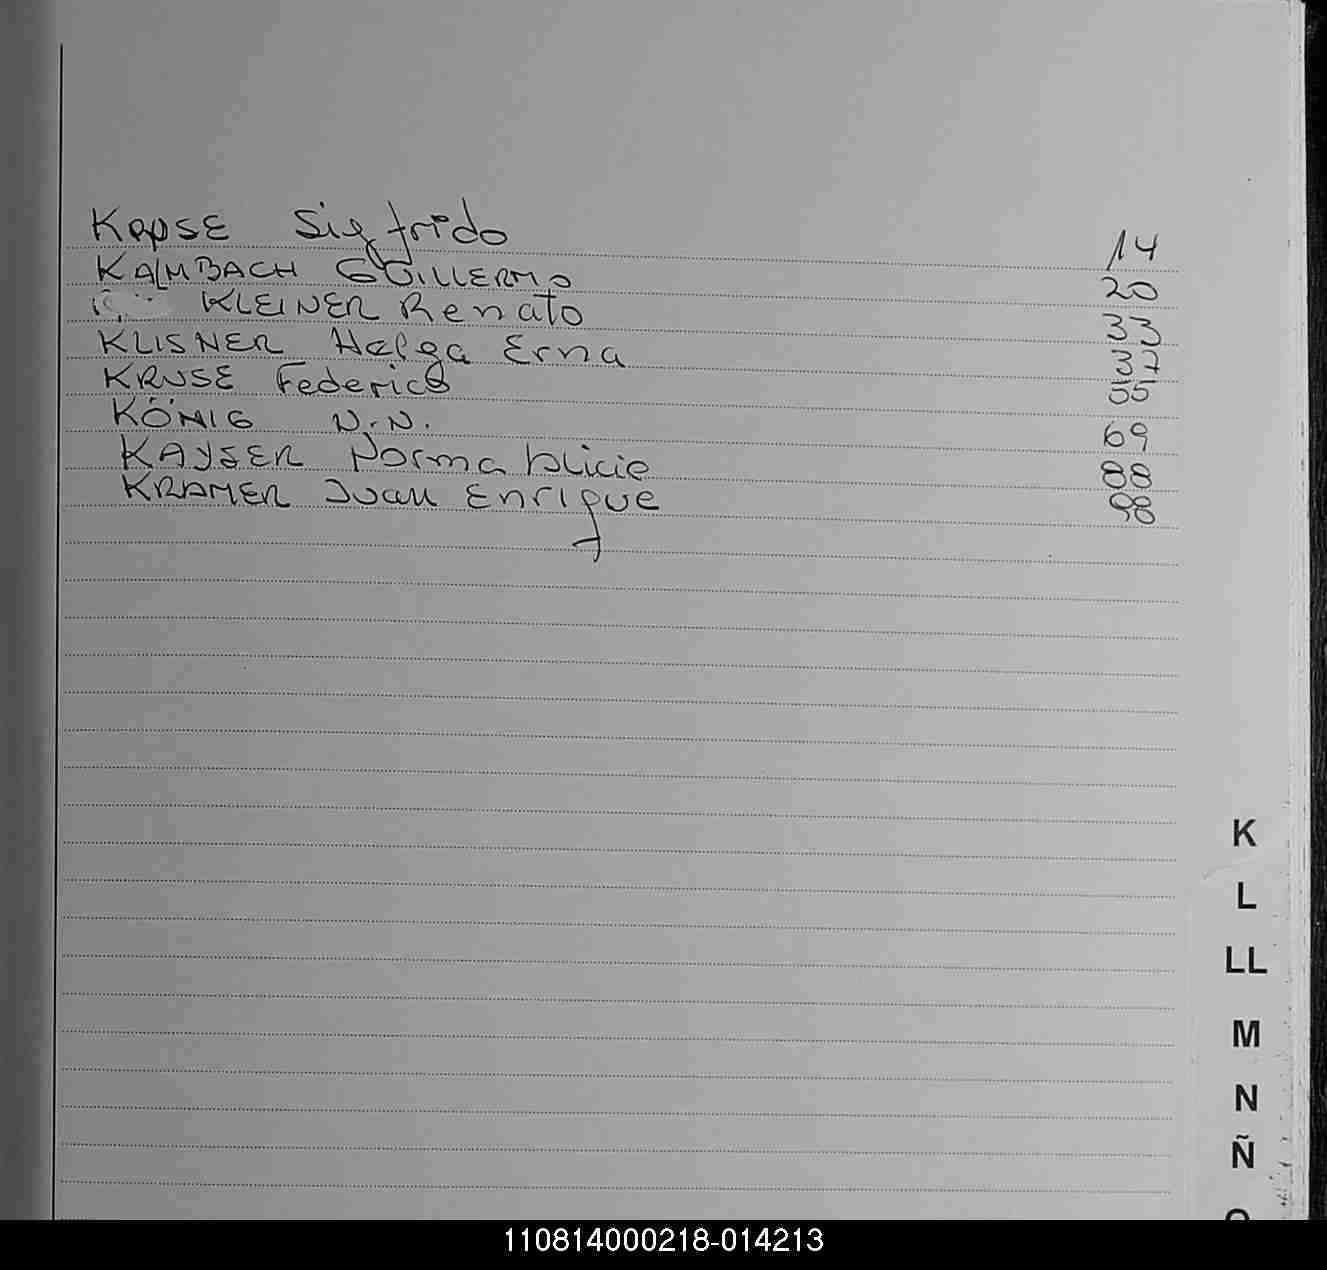 KAPSE Sigfrido 14
KALMBACH GUILLERMO 20
KLEINER Renato 33
KLISNER Helga Erna 37
KRUSE Federico 55
KÖNIG N.N. 69
KAYSER Norma Alicia 88
KRAMER Juan Enrique 98
K
L
LL
M
N
Ñ
O
110814000218-014213